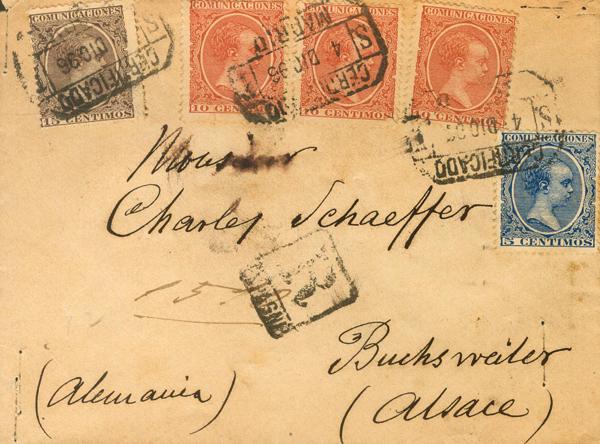 COMUNICACIONES
15 CENTIMOS
COMUNICACIONES
10 CENTIMOS
COMUNICACIONES
10 CENTIMOS
COMUNICACIONES
CENTIMOS
CERTIFICADO
DIC 96
CERTIF
4 DIC 96
MADRID
CERTIFICADO
4 DIC 96
COMUNICACIONES
5 CENTIMOS
Monsieur
Charles Schaeffer
Buchsweiler
(Alemania)
(Alsace)